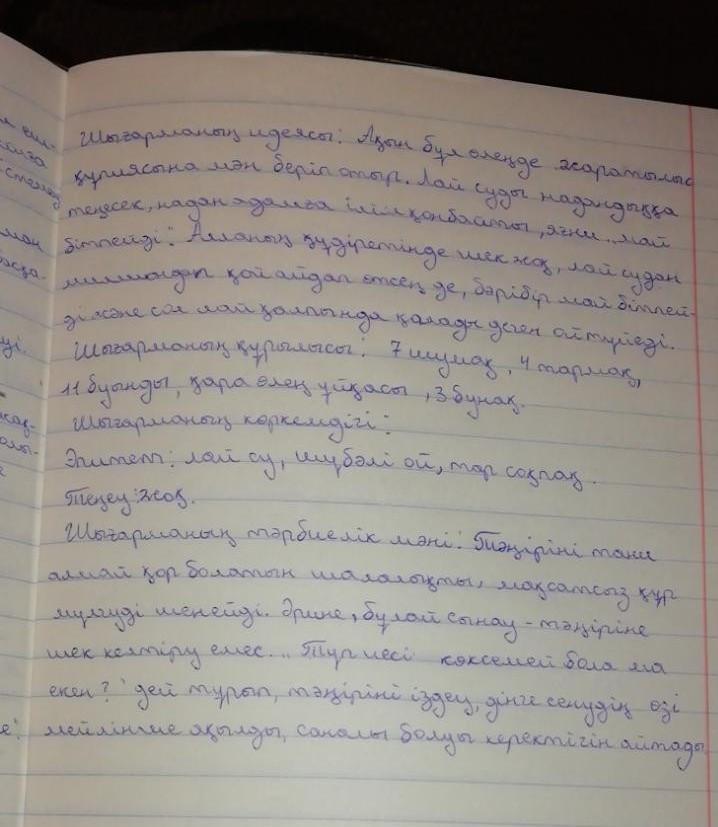 Шығарманың идеясы: Ақын бұл өлеңде жаратылыс
құпиясына мән беріп отыр. Лай суды надандыққа
теңесек, надан адамға ілім қонбайты, яғни „май
бітпейді". Алланың құдіретінде шек жоқ, лай судан
қой айдап өтсең де, бәрібір май бітпей-
ді және сол лай қалпында қалады деген ой түйеді.
Шығарманың құрылысы: 7 шумақ, 4 тармақ,
11 буынды, қара өлең ұйқасы, 3 бунақ.
Шығарманың көркемдігі:
Эпитет: лай су, шүбәлі ой, тар соқпақ.
Теңеу: жоқ.
Шығарманың тәрбиелік мәні: Тәңіріні тани
алмай қор болатын шалалықты, мақсатсыз құр
мүлгуді шенейді. Әрине, бұлай сынау - тәңіріне
шек келтіру емес... Түп иесі көксемей бола ма
екен? дей тұрып, тәңіріні іздеу, дінге сенудің өзі
мейлінше ақылды, саналы болуы керектігін айтады